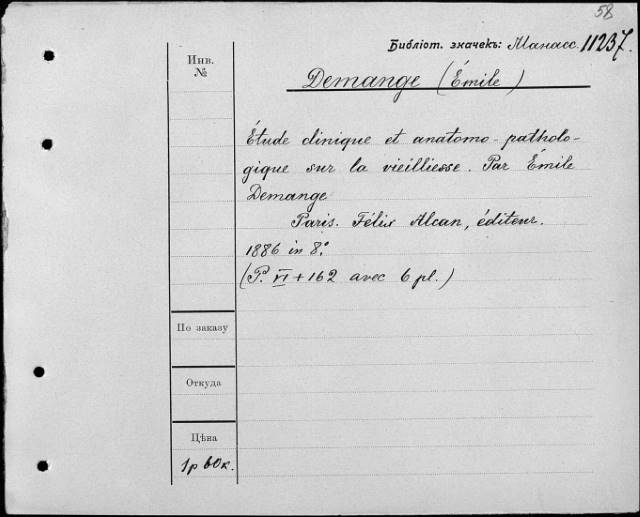 58
Библіот. значекъ: Манасс. 11237.
Инв.
№
Demange (Émile)
Étude clinique et anatomo-patholo-
gique sur la vieilliesse. Par Émile
Demange
Paris. Félix Alcan, éditeur.
1886 in 8.°
(P. VI + 162 avec 6 pl.)
По заказу
Откуда
Цѣна
1р 60к.